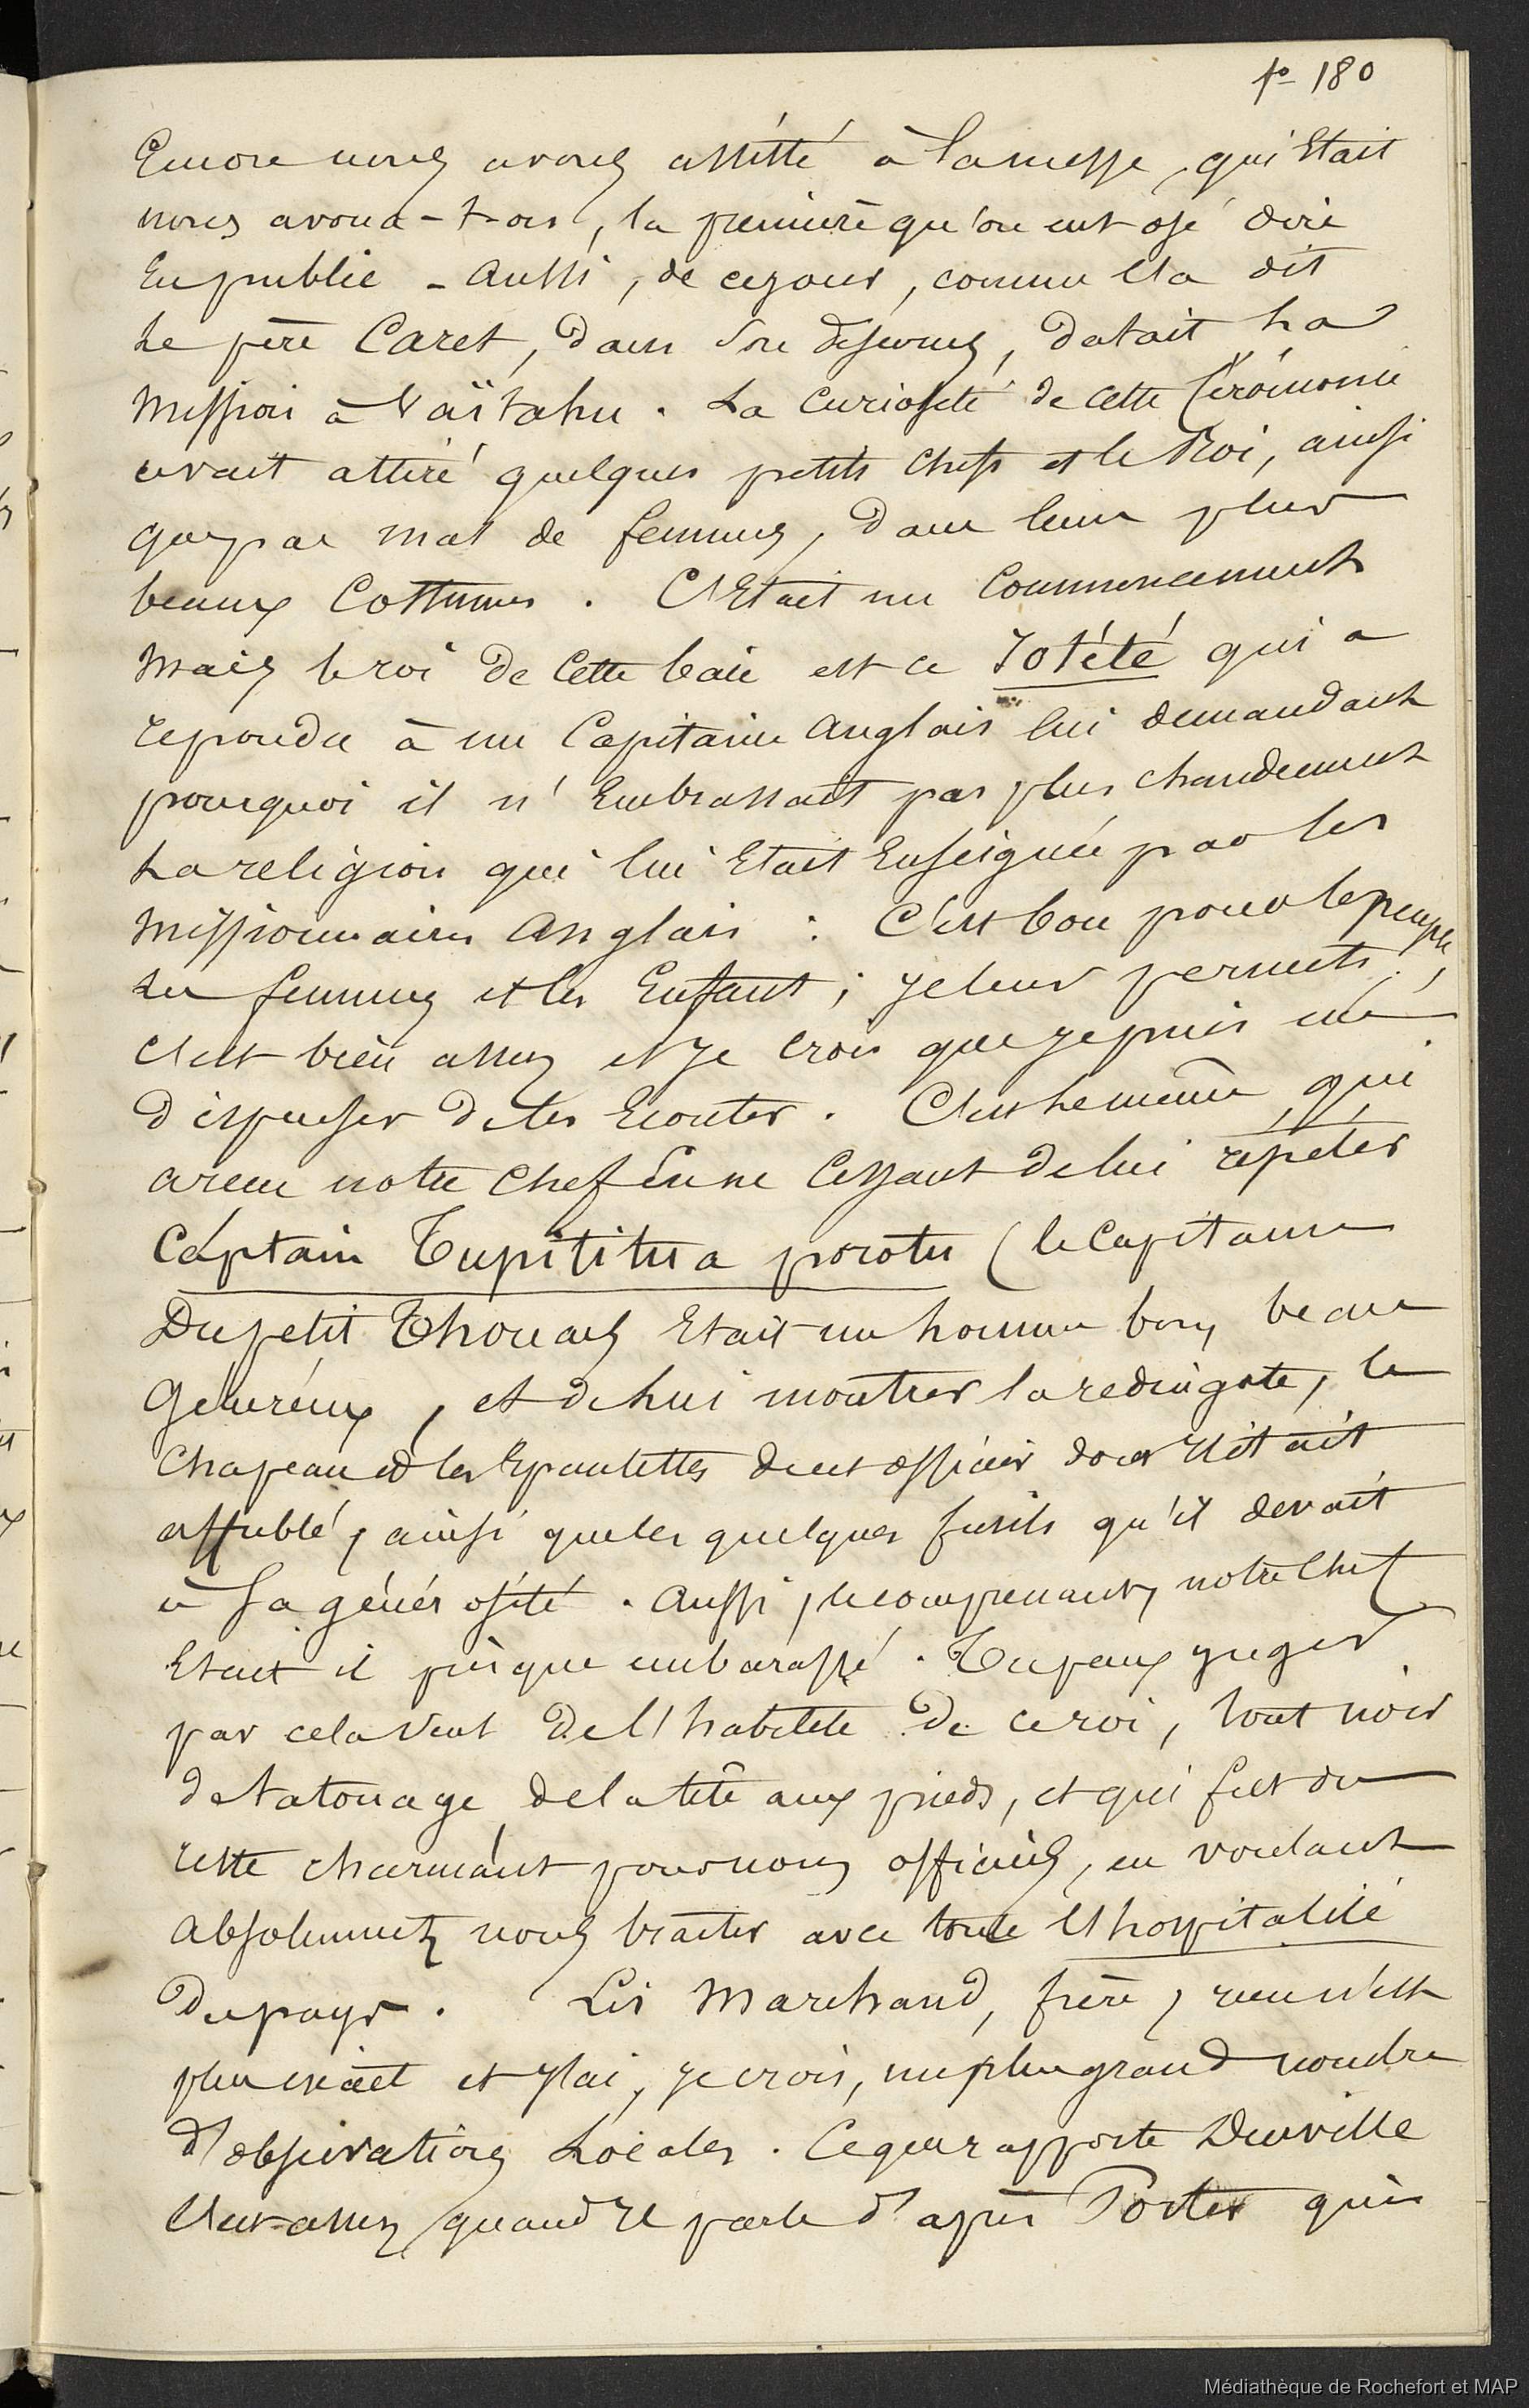 fo 180
Encore nous avons assisté à la messe, qui Etait
nous avoua-t-on, la première qu'on eut osé dire
En public - Aussi, de ce jour, comme l'a dit
Le père Caret, dans son discours, datait sa
Mission à Vaïtahu. La curiosité de cette Cérémonie
avait attiré quelques petits chefs et le Roi, ainsi
que pas mal de femmes, dans leurs plus
beaux Costumes. C'Etait un Commencement
Mais le roi de cette baie est ce Iotété qui a
repondu à un Capitaine Anglais lui demandant
pourquoi il n'Embrassait pas plus chaudement
La religion qui lui Etait Enseignée par les
Missionnaires Anglais : C'est bon pour le peuple,
Les femmes et les Enfants ; je leur permets ;
C'est bien assez et je crois que je puis me
dispenser de les Ecouter. C'est le même qui
a reçu notre Chef En ne Cessant de lui répéter
Captain Tupititua porotu (le Capitaine
Dupetit Thouars Etait un homme bon, beau
Généreux, et de lui montrer la redingote, le
Chapeau et les Epaulettes de cet officier dont il était
affublé, ainsi que les quelques fusils qu'il devait
à sa générosité. Aussi, le comprenant, notre Chef
Etait il presque embarassé. Tu peux juger
par cela seul de l'habileté de ce roi, tout noir
de tatouage de la tête aux pieds, et qui fut du
reste charmant pour nous officiers, en voulant
Absolument nous traiter avec toute l'hospitalité
Du pays. Lis Marchand, frère, rien n'est
plus exact et j'ai, je crois, un plus grand nombre
d'observations Locales. Ce que rapporte Durville
C'est assez, quand il parle d'après Porter qui
Médiathèque de Rochefort et MAP